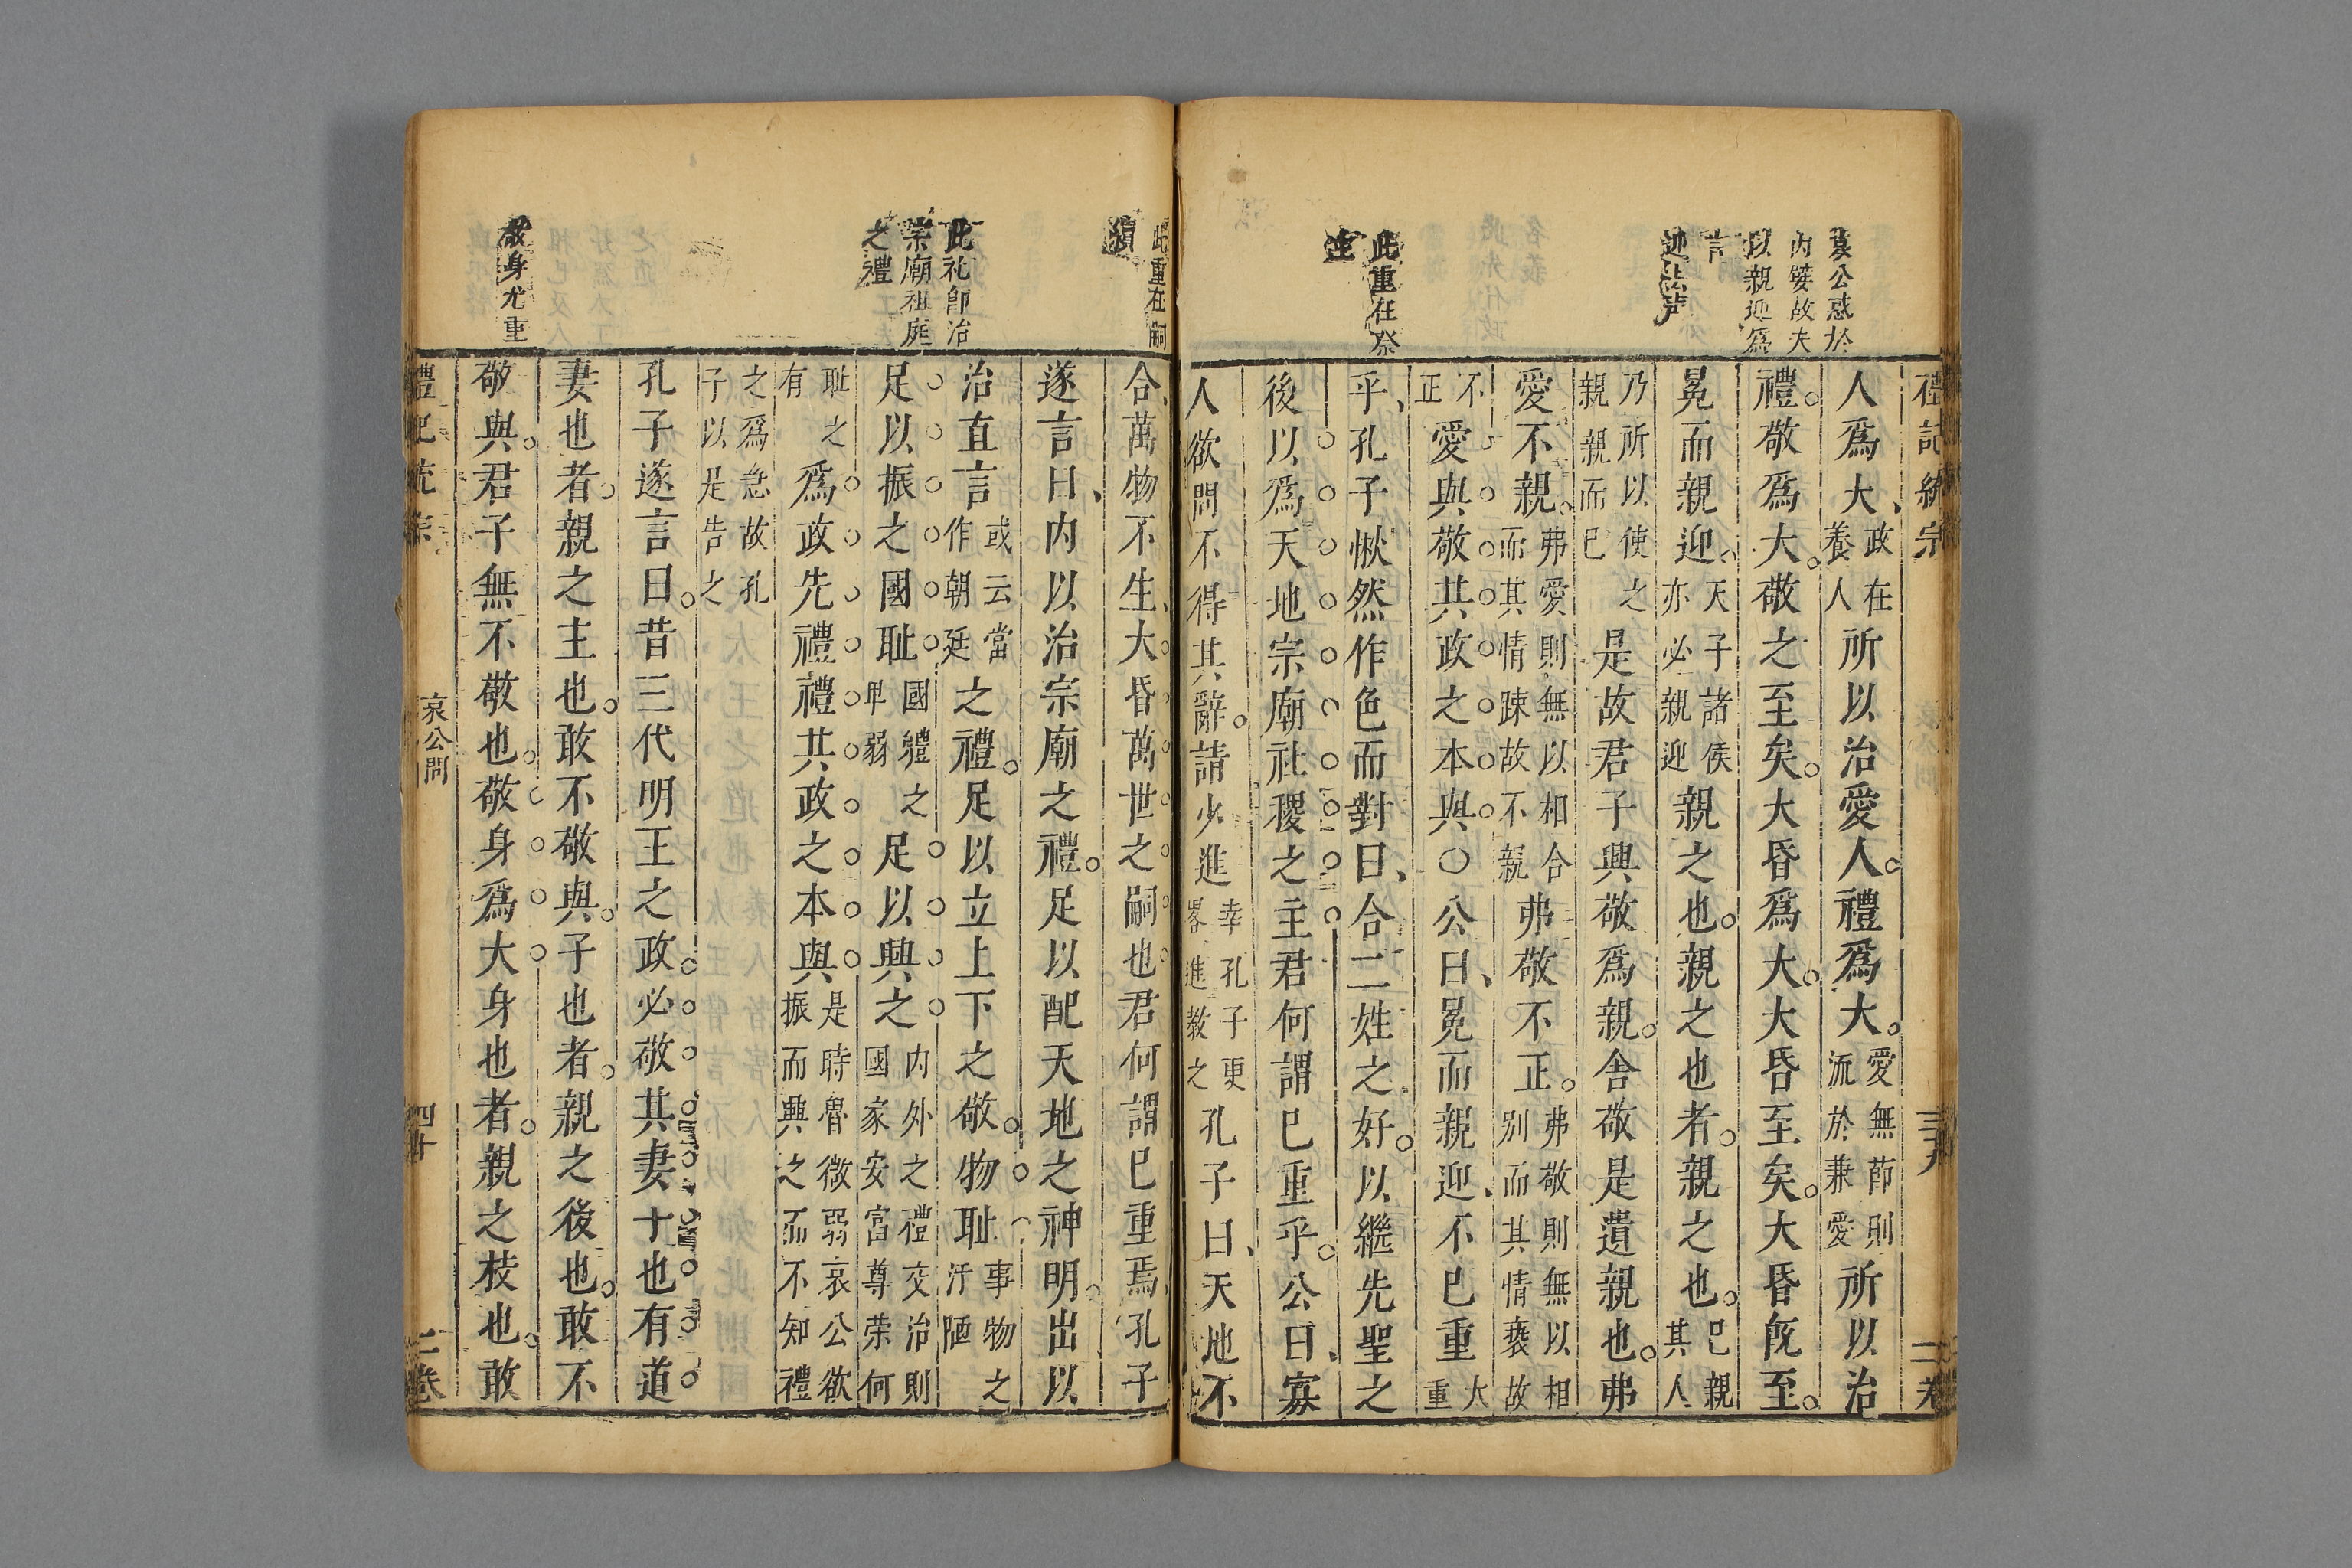 禮記統宗 三九 二卷
哀公惑於
内嬖故夫
以親迎爲
言
此重在祭
人爲大政在養人所以治愛人禮爲大愛無節則流於兼愛所以治
禮敬爲大敬之至矣大昏爲大大昏至矣大昏旣至
冕而親迎天子諸侯亦必親迎親之也親之也者親之也已親其人
乃所以使之親親而已是故君子興敬爲親舍敬是遺親也弗
愛不親弗愛則無以相合而其情踈故不親弗敬不正弗敬則無以相别而其情褻故
不正愛與敬其政之本與○公曰冕而親迎不已重大重
乎孔子愀然作色而對曰合二姓之好以繼先聖之
後以爲天地宗廟社稷之主君何謂已重乎公曰寡
人欲問不得其辭請少進幸孔子更畧進教之孔子曰天地不
此重在嗣
此礼即治
崇廟祖庭
之禮
敬身尤重
合萬物不生大昏萬世之嗣也君何謂已重焉孔子
遂言曰内以治宗廟之禮足以配天地之神明出以
治直言或云當作朝廷之禮足以立上下之敬物耻事物之汙陋
足以振之國耻國軆之卑弱足以興之内外之禮交治則國家安富尊荣何
耻之有爲政先禮禮其政之本與是時魯微弱哀公欲振而興之而不知禮
之爲急故孔子以是告之
孔子遂言曰昔三代明王之政必敬其妻十也有道
妻也者親之主也敢不敬與子也者親之後也敢不
敬與君子無不敬也敬身爲大身也者親之枝也敢
禮記統宗 哀公問 四十 二卷